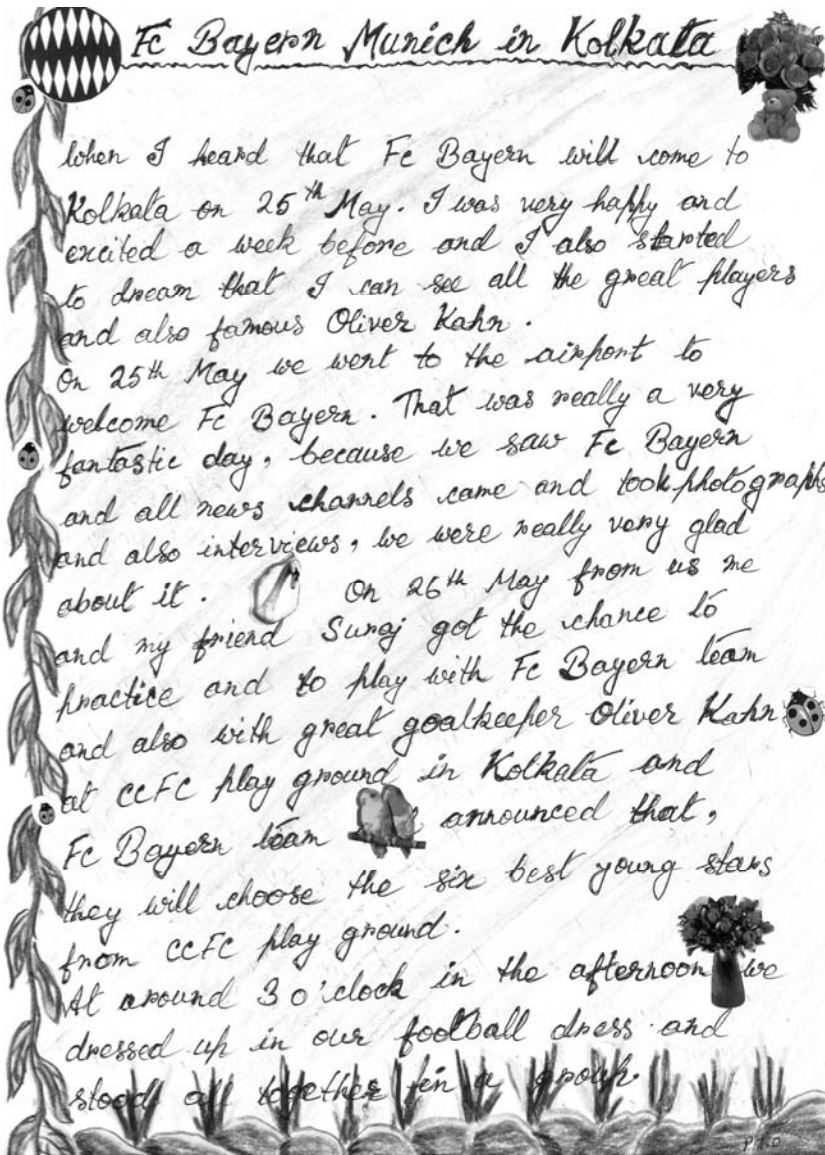 Fc Bayern Munich in Kolkata
When I heard that Fc Bayern will come to
Kolkata on 25th May. I was very happy and
excited a week before and I also started
to dream that I can see all the great players
and also famous Oliver Kahn.
On 25th May we went to the airport to
welcome Fc Bayern. That was really a very
fantastic day, because we saw Fc Bayern
and all news channels came and took photographs
and also interviews, we were really very glad
about it. On 26th May from us me
and my friend Suraj got the chance to
practice and to play with Fc Bayern team
and also with great goalkeeper Oliver Kahn
at CCFC play ground in Kolkata and
Fc Bayern team announced that,
they will choose the six best young stars
from CCFC play ground.
At around 3 o'clock in the afternoon we
dressed up in our football dress and
stood all together in a group.
P.T.O